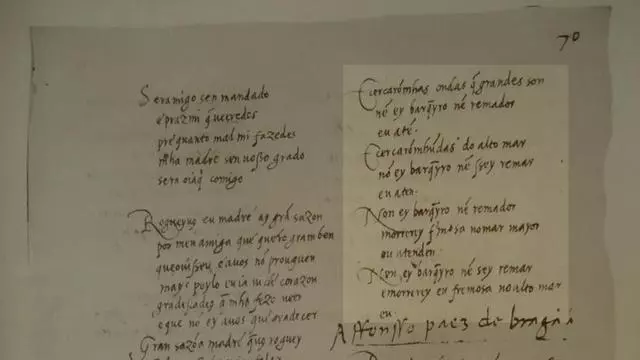 70
Seramigo sen mandado
e prazmi q̃ ueredes
per quanto mal mi fazedes
Mha madre sen uosso grado
sera oiaq̃ comigo
Rogueyuꝯ eu madre ay grã sazon
por meu amigo que quero gram ben
que o uissen e a uos nõ prougue
mays poylo eu ia ui de coraçon
gradesçades q̃ mho fezo ueer
e que nõ ey a uos que gradecer
Gran sazõ a madre q̃ uꝯ roguey
E cercarõmhas ondas q̃ grandes son
nẽ ey barq̃yro nẽ remador
eu atẽ.
E cercarõmhudas do alto mar
nõ ey barq̃yro nẽ ssey remar
eu aten.
Non ey barq̃yro nẽ remador
morrerey fremosa no mar mayor
eu atenden
Non ey barq̃yro nẽ sey remar
e morrerey eu fremosa no alto mar
eu
Affonsso paez de bragãa